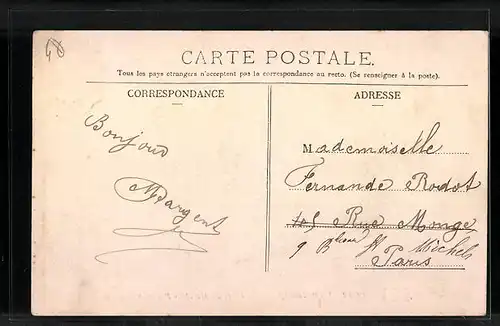 48
CARTE POSTALE.
Tous les pays étrangers n'acceptent pas la correspondance au recto. (Se renseigner à la poste).
CORRESPONDANCE
ADRESSE
Bonjour
Margent
Mademoiselle
Fernande Rodot
105 Rue Monge
9 Bleue St Michels
Paris